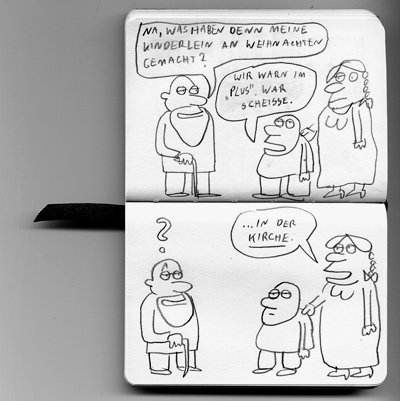 NA, WAS HABEN DENN MEINE
KINDERLEIN AN WEIHNACHTEN
GEMACHT?
WIR WARN IM
„PLUS". WAR
SCHEISSE.
?
...IN DER
KIRCHE.